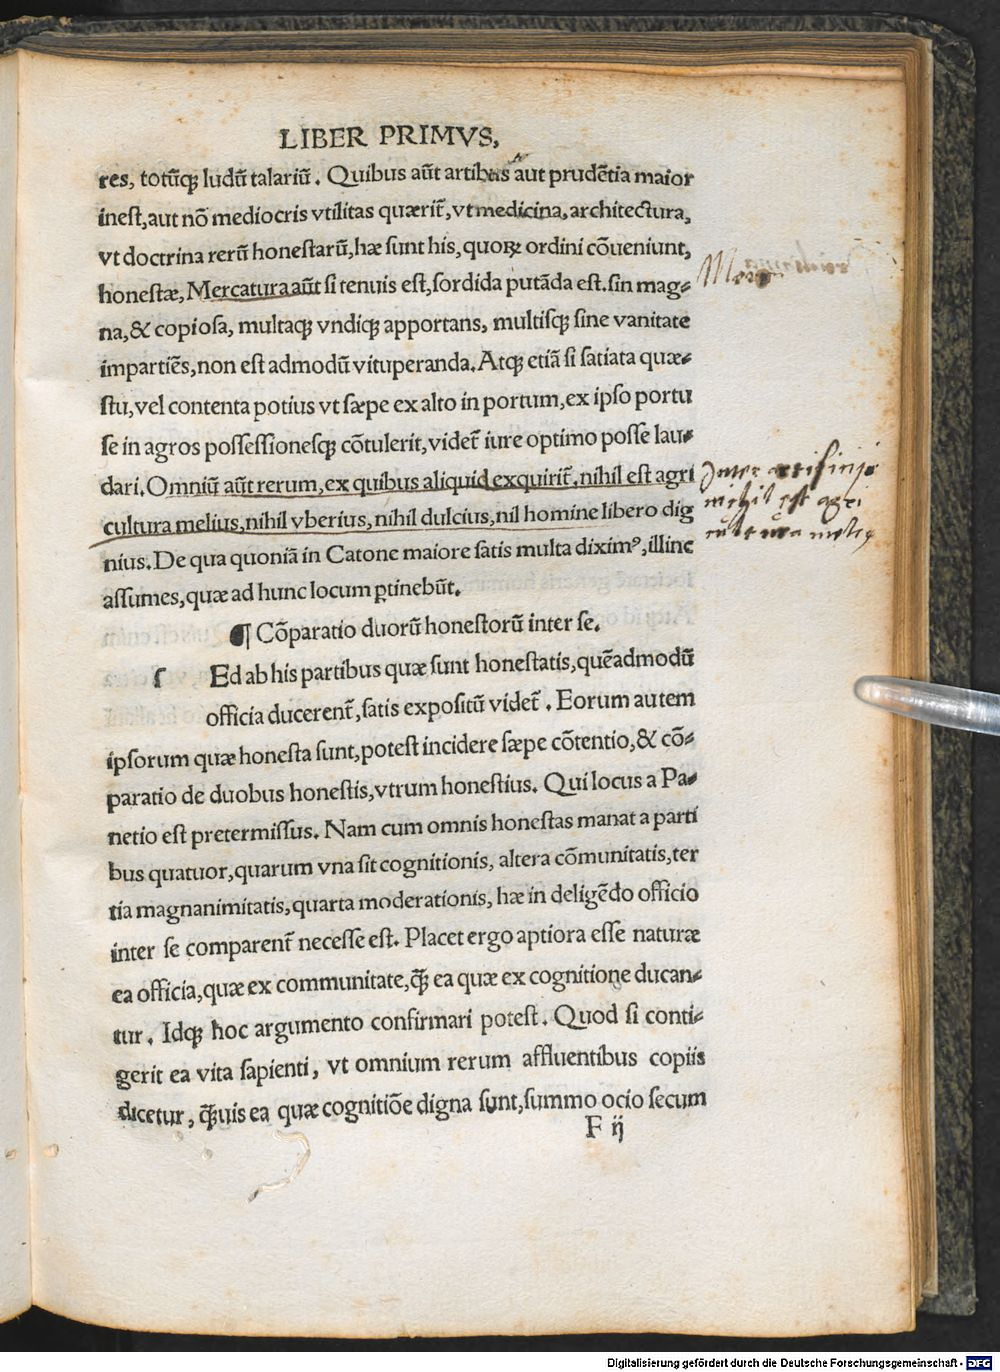 LIBER PRIMVS,
res, totūq; ludū talariū. Quibus aūt artibus aut prudētia maior
inest, aut nō mediocris vtilitas quærit̃, vt medicina, architectura,
vt doctrina rerū honestarū, hæ sunt his, quoꝝ ordini cōueniunt,
honestæ, Mercatura aūt si tenuis est, sordida putāda est. sin mag⸗
na, & copiosa, multaq; vndiq; apportans, multisq; sine vanitate
impartiēs, non est admodū vituperanda. Atq; etiā si satiata quæ⸗
stu, vel contenta potius vt sæpe ex alto in portum, ex ipso portu
se in agros possessionesq; cōtulerit, videt̃ iure optimo posse lau⸗
dari. Omniū aūt rerum, ex quibus aliquid exquirit̃, nihil est agri
cultura melius, nihil vberius, nihil dulcius, nil homine libero dig
nius. De qua quoniā in Catone maiore satis multa diximꝰ, illinc
assumes, quæ ad hunc locum ꝑtinebūt.
¶ Cōparatio duorū honestorū inter se.
s Ed ab his partibus quæ sunt honestatis, quēadmodū
officia ducerent̃, satis expositū videt̃. Eorum autem
ipsorum quæ honesta sunt, potest incidere sæpe cōtentio, & cō⸗
paratio de duobus honestis, vtrum honestius. Qui locus a Pa⸗
netio est pretermissus. Nam cum omnis honestas manat a parti
bus quatuor, quarum vna sit cognitionis, altera cōmunitatis, ter
tia magnanimitatis, quarta moderationis, hæ in deligēdo officio
inter se comparent̃ necesse est. Placet ergo aptiora esse naturæ
ea officia, quæ ex communitate, q̄ꝫ ea quæ ex cognitione ducan⸗
tur. Idq; hoc argumento confirmari potest. Quod si conti⸗
gerit ea vita sapienti, vt omnium rerum affluentibus copiis
dicetur, q̄ꝫuis ea quæ cognitiōe digna sunt, summo ocio secum
F ij
Inter artificia
nihil est agri
cultura
Digitalisierung gefördert durch die Deutsche Forschungsgemeinschaft - DFG